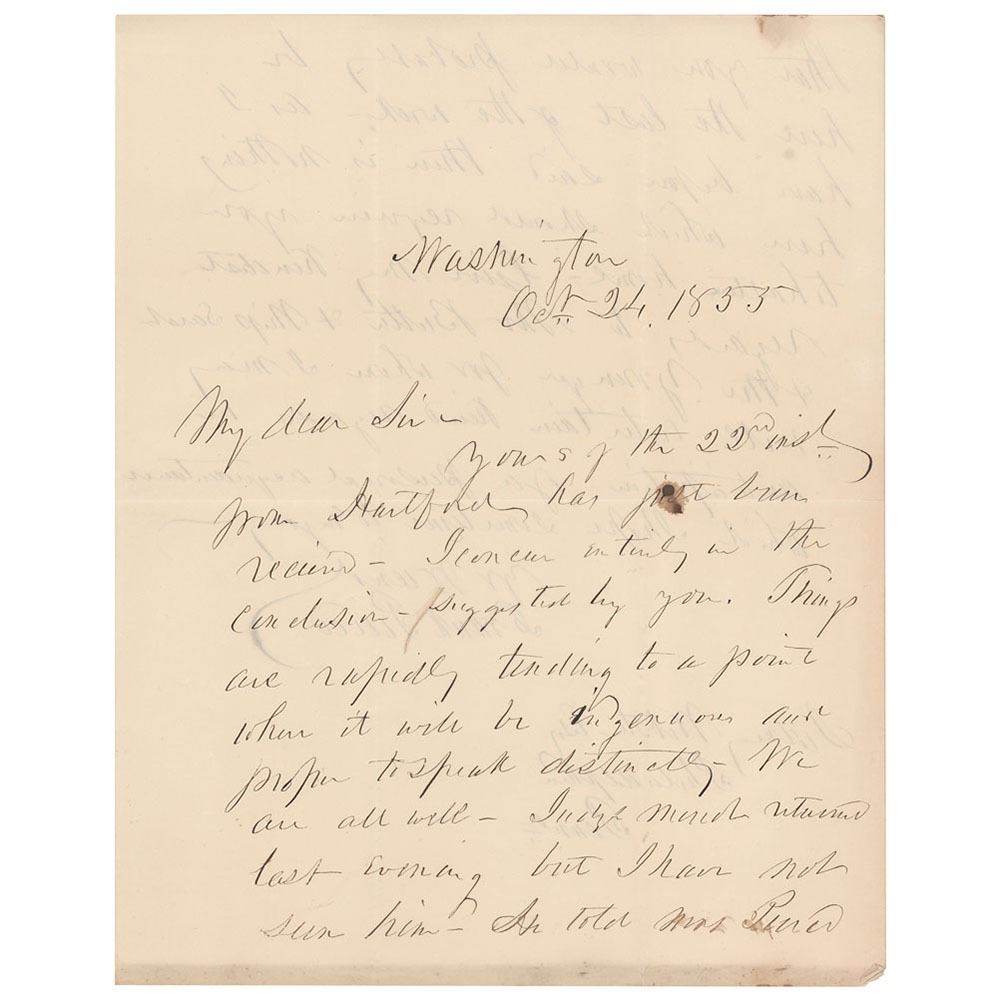 Washington
Oct 24. 1855
My dear Sir –
Yours of the 22nd inst
from Hartford has just been
received – I concur entirely in the
conclusion – suggested by you. Things
are rapidly tending to a point
when it will be ingenuous and
proper to speak distinctly – We
are all well – Judge returned
last evening but I have not
seen him – He told Mrs Pierce